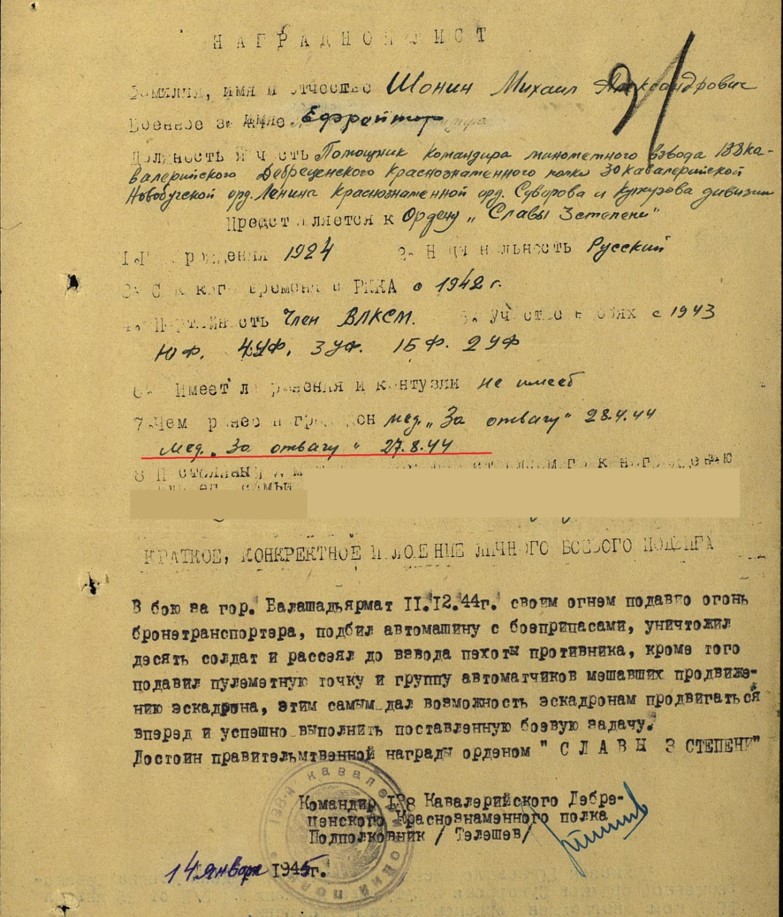 НАГРАДНОЙ ЛИСТ
Фамилия, имя и отчество Шонин Михаил Александрович
Военное звание Ефрейтор
Должность и часть Помощник командира минометного взвода 138 ка-
валерийского Дебреценского Краснознаменного полка 30 кавалерийской
Новобугской орд. Ленина Краснознаменной орд. Суворова и Кутузова дивизии
Представляется к Ордену „Славы 3 степени"
1. рождения 1924 2. Национальность Русский
3. С какого времени в РККА с 1942 г.
4. Партийность Член ВЛКСМ. 5. участие в боях с 1943
ЮФ, 4УФ, 3УФ, 1БФ. 2УФ
6. Имеет ли ранения и контузии не имеет
7. Чем ранее награжден мед. „За отвагу" 28.4.44
мед. „За отвагу" 27.8.44
8
КРАТКОЕ, КОНКРЕТНОЕ ИЗЛОЖЕНИЕ ЛИЧНОГО БОЕВОГО ПОДВИГА
В бою за гор. Балашадьярмат 11.12.44г. своим огнем подавио огонь
бронетранспортера, подбил автомашину с боеприпасами, уничтожил
десять солдат и рассеял до взвода пехоты противника, кроме того
подавил пулеметную точку и группу автоматчиков мешавших продвиже-
нию эскадрона, этим самым дал возможность эскадронам продвигаться
вперед и успешно выполнить поставленную боевую задачу.
Достоин правительмтвенной награды орденом " СЛАВЫ 3 СТЕПЕНИ"
Командир 138 Кавалерийского Дебре-
ценского Краснознаменного полка
Подполковник / Телешев/
14 января 1945г.